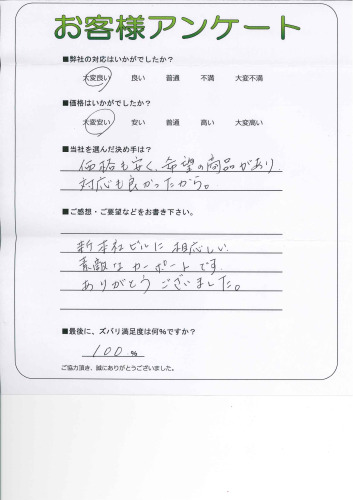 お客様アンケート
■弊社の対応はいかがでしたか?
大変良い 良い 普通 不満 大変不満
■価格はいかがでしたか?
大変安い 安い 普通 高い 大変高い
■当社を選んだ決め手は?
価格も安く、希望の商品があり
対応も良かったから。
■ご感想・ご要望などをお書き下さい。
新本社ビルに相応しい
素敵なカーポートです。
ありがとうございました。
■最後に、ズバリ満足度は何%ですか?
100 %
ご協力頂き、誠にありがとうございました。